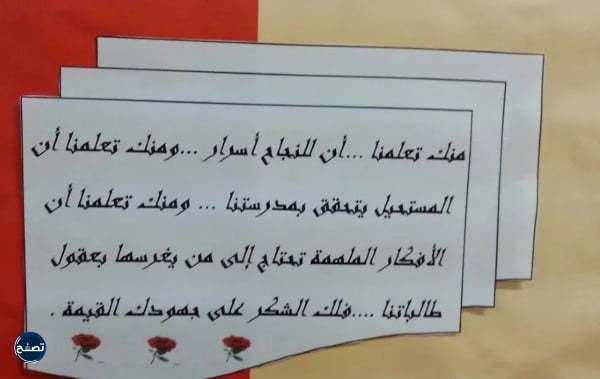 منك تعلمنا ...أن للنجاح أسرار ...ومنك تعلمنا أن
المستحيل يتحقق بمدرستنا ... ومنك تعلمنا أن
الأفكار الملهمة تحتاج إلى من يغرسها بعقول
طالباتنا ....فلك الشكر على جهودك القيمة .
تصفح